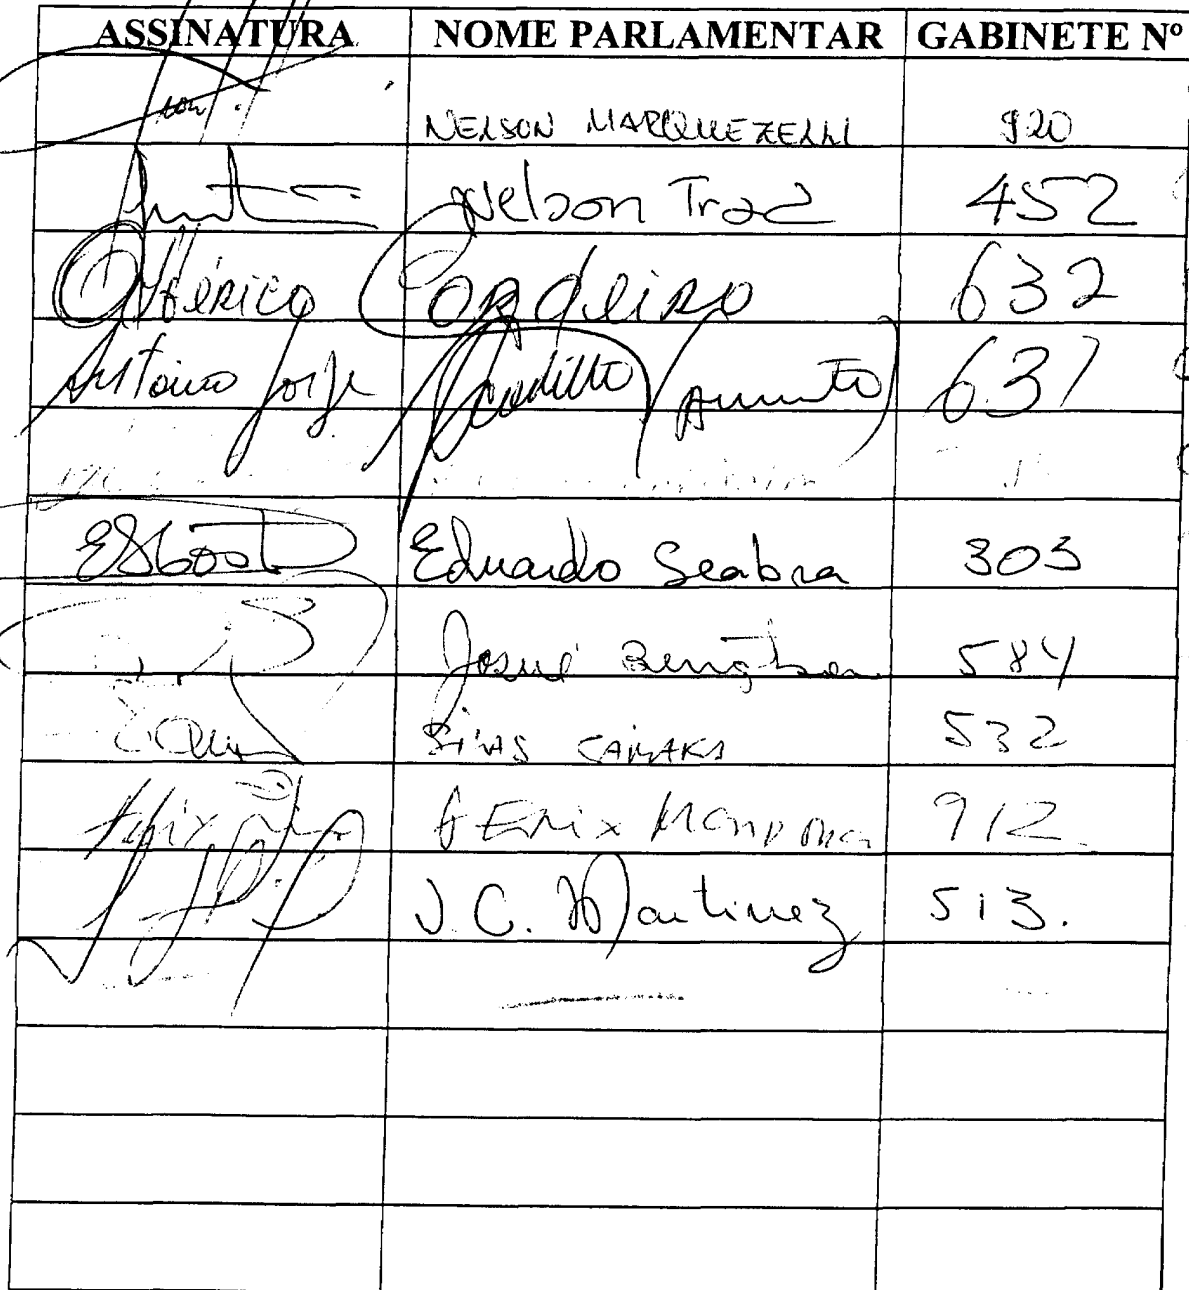 ASSINATURA NOME PARLAMENTAR GABINETE Nº
NELSON MARQUEZELLI 920
Nelson Trad 452
Albérico Cordeiro 632
Antonio Jorge 637
Eduardo Seabra 303
Josué Bengtson 584
SILAS CAMARA 532
FÉLIX MENDONÇA 912
J.C. Martinez 513.